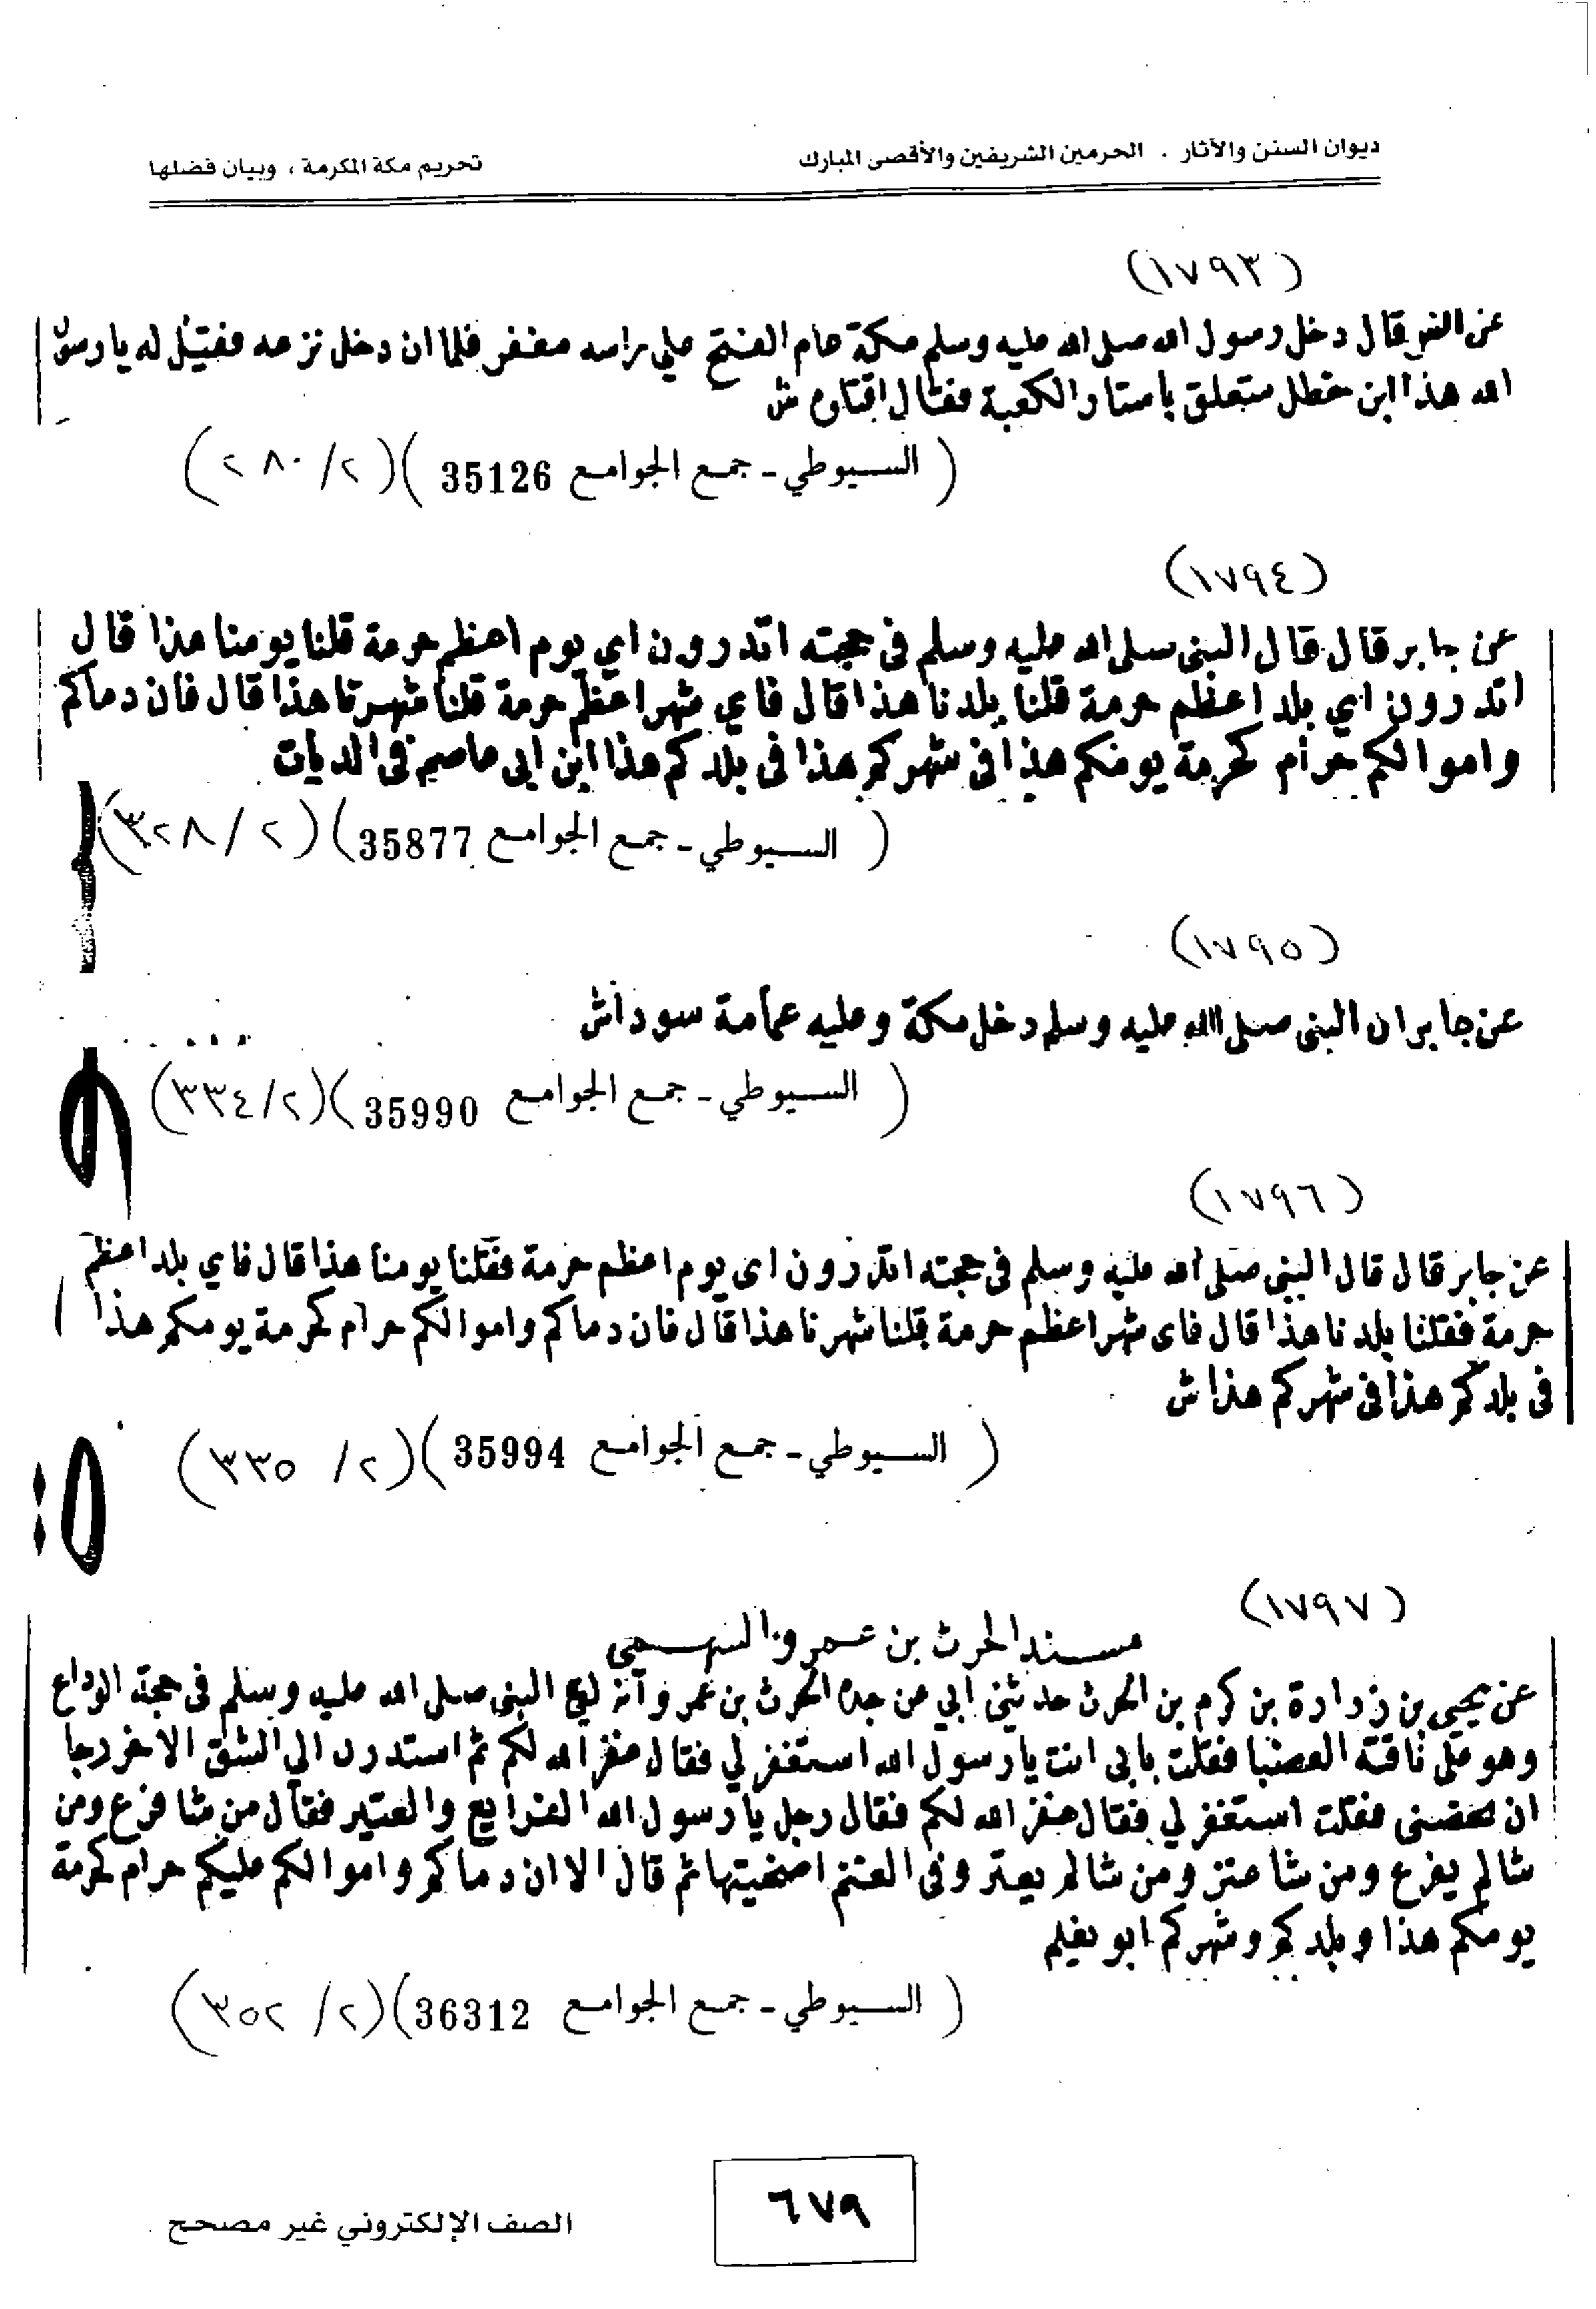 ديوان السنن والآثار . الحرمين الشريفين والأقصى المبارك
تحريم مكة المكرمة ، وبيان فضلها
(١٧٩٣)
عن انس قال دخل رسول الله صلى الله عليه وسلم مكة عام الفتح علي راسه مغفر فلما ان دخل نزعه فقيل له يا رسول
الله هذا ابن خطل متعلق باستار الكعبة فقال اقتلوه ش
( السيوطي - جمع الجوامع 35126 )(٢/ ٢٨٠)
(١٧٩٤)
عن جابر قال قال النبى صلى الله عليه وسلم فى حجته اتدرون اي يوم اعظم حرمة قلنا يومنا هذا قال
اتدرون اي بلد اعظم حرمة قلنا بلدنا هذا قال فاي شهر اعظم حرمة قلنا شهرنا هذا قال فان دماكم
واموالكم حرام كحرمة يومكم هذا فى شهركم هذا فى بلدكم هذا ابن ابى عاصم فى الديات
( السيوطي - جمع الجوامع 35877 )(٢/ ٣٢٨)
(١٧٩٥)
عن جابر ان النبى صلى الله عليه وسلم دخل مكة وعليه عمامة سودا ش
( السيوطي - جمع الجوامع 35990 )(٢/ ٣٣٤)
(١٧٩٦)
عن جابر قال قال النبى صلى الله عليه وسلم فى حجته اتدرون اى يوم اعظم حرمة فقلنا يومنا هذا قال فاي بلد اعظم
حرمة فقلنا بلدنا هذا قال فاى شهر اعظم حرمة قلنا شهرنا هذا قال فان دماكم واموالكم حرام كحرمة يومكم هذا
فى بلدكم هذا فى شهركم هذا ش
( السيوطي - جمع الجوامع 35994 )(٢/ ٣٣٥)
(١٧٩٧)
مسند الحرث بن عمرو السهمى
عن يحيى بن زرارة بن كرم بن الحرث حدثنى ابي عن جده الحرث بن عمرو انه لقي النبى صلى الله عليه وسلم فى حجة الوداع
وهو على ناقته العضبا فقلت بابى انت يا رسول الله استغفر لي فقال غفر الله لكم ثم استدرت الي الشق الاخر رجا
ان يخصنى فقلت استغفر لي فقال غفر الله لكم فقال رجل يا رسول الله الفرايع والعتير فقال من شا فرع ومن
شا لم يفرع ومن شا عتر ومن شا لم يعتر وفى الغنم اضحيتها ثم قال الا ان دماكم واموالكم عليكم حرام كحرمة
يومكم هذا وبلدكم وشهركم ابو نعيم
( السيوطي - جمع الجوامع 36312 )(٢/ ٣٥٢)
٦٧٩
الصف الإلكتروني غير مصحح